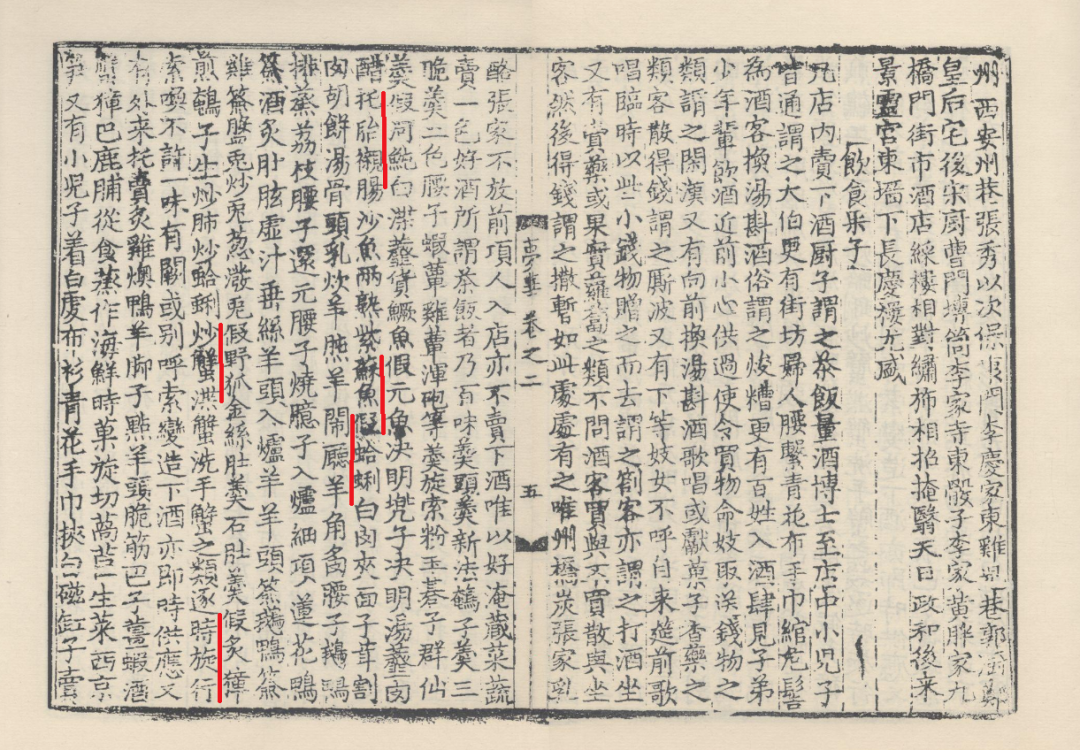 州西安州巷張秀以次保康門李慶家東雞兒巷郭廚鄭
皇后宅後宋厨曹門塼筒李家寺東骰子李家黄胖家九
橋門街市酒店綵樓相對繡旆相招掩翳天日政和後来
景靈宮東墻下長慶樓尤盛
飲食果子
凡店内賣下酒厨子謂之茶飯量酒博士至店中小児子
皆通謂之大伯更有街坊婦人腰繫青花布手巾綰危髻
為酒客換湯斟酒俗謂之焌糟更有百姓入酒肆見子弟
少年輩飲酒近前小心供過使令買物命妓取送錢物之
類謂之閑漢又有向前換湯斟酒歌唱或獻菓子香藥之
類客散得錢謂之厮波又有下等妓女不呼自来筵前歌
唱臨時以些小錢物贈之而去謂之劄客亦謂之打酒坐
又有賣藥或果實蘿蔔之類不問酒客買與不買散與坐
客然後得錢謂之撒暫如此處處有之唯州橋炭張家乳
夢華卷之二
五
酪張家不放前項人入店亦不賣下酒唯以好淹藏菜蔬
賣一色好酒所謂茶飯者乃百味羹頭羹新法鵪子羹三
脆羹二色腰子蝦蕈雞蕈渾砲等羹旋索粉玉碁子群仙
羹假河魨白渫虀貨鱖魚假元魚决明兜子决明湯虀肉
醋托胎襯腸沙魚兩熟紫蘇魚假蛤蜊白肉夾面子茸割
肉胡餅湯骨頭乳炊羊肫羊鬧廳羊角炙腰子鵝鴨
排蒸荔枝腰子還元腰子燒臆子入爐細項蓮花鴨
簽酒炙肚胘虚汁垂絲羊頭入爐羊羊頭簽鵝鴨簽
雞簽盤兎炒兎葱潑兎假野狐金絲肚羹石肚羹假炙獐
煎鵪子生炒肺炒蛤蜊炒蟹渫蟹洗手蟹之類逐時旋行
索喚不許一味有闕或别呼索變造下酒亦即時供應又
有外来托賣炙雞燠鴨羊脚子點羊頭脆筋巴子薑蝦酒
蟹獐巴鹿脯從食蒸作海鮮時菓旋切萵苣生菜西京
笋又有小児子着白虔布衫青花手巾挾白磁缸子賣